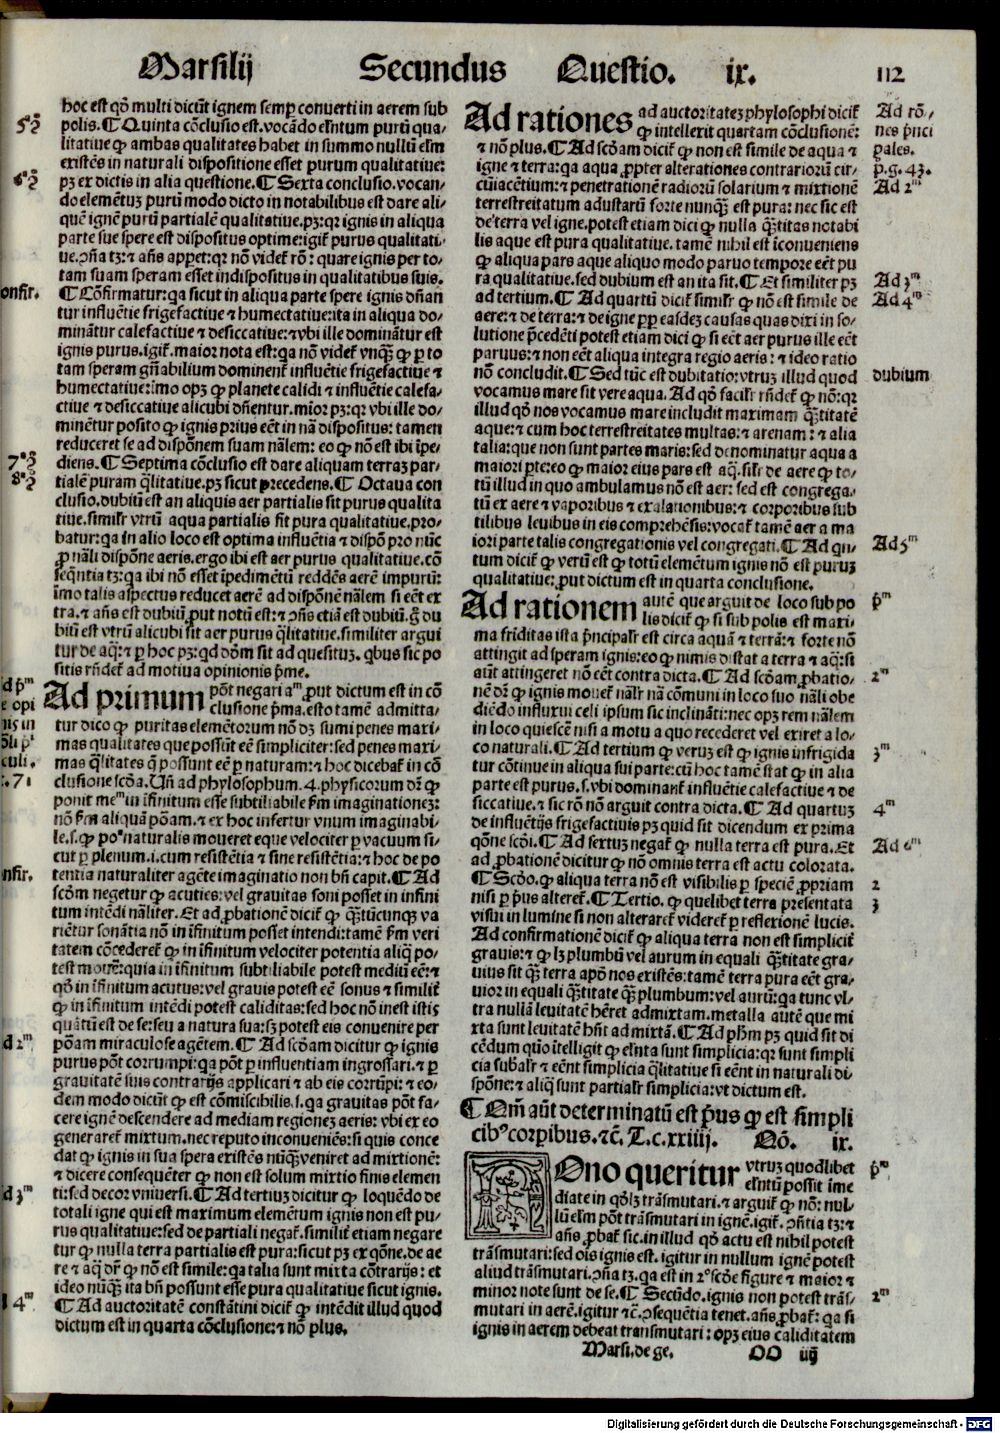 Marsilij Secundus Questio. ix. 112
hoc est qđ multi dicūt ignem semp̱ conuerti in aerem sub
polis. ¶ Quinta cōclusio est. vocādo elm̄tum purū qua/
litatiue qꝫ ambas qualitates habet in summo nullū elm̄
existēs in naturali dispositione esset purum qualitatiue:
pꝫ ex dictis in alia questione. ¶ Sexta conclusio. vocan/
do elemētuꝫ purū modo dicto in notabilibus est dare ali/
quē ignē purū partialē qualitatiue. pꝫ: qꝛ ignis in aliqua
parte sue spere est dispositus optime: igiť purus qualitati/
ue. ꝯña tꝫ: ⁊ añs appꝫet: qꝛ nō videť rō: quare ignis per to/
tam suam speram esset indispositus in qualitatibus suis.
¶ Cōfirmatur: qa sicut in aliqua parte spere ignis dñan
tur influētie frigefactiue ⁊ humectatiue: ita in aliqua do/
minātur calefactiue ⁊ desiccatiue: ⁊ vbi ille dominātur est
ignis purus. igiť. maior nota est: qa nō videť vnqꝫ̄ qꝫ per to
tam speram gñabilium dominenť influētie frigefactiue ⁊
humectatiue: imo opꝫ qꝫ planete calidi ⁊ influētie calefa/
ctiue ⁊ desiccatiue alicubi dñentur. mīor pꝫ: qꝛ vbi ille do/
minētur posito qꝫ ignis prius eēt in nā dispositus: tamen
reduceret se ad dispōnem suam nālem: eo qꝫ nō est ibi īpe/
diens. ¶ Septima cōclusio est dare aliquam terraꝫ par/
tialē puram q̄litatiue. pꝫ sicut precedens. ¶ Octaua con
clusio. dubiū est an aliquis aer partialis sit purus qualita
tiue. similiť vtrū aqua partialis sit pura qualitatiue. pro/
batur: qa in alio loco est optima influētia ⁊ dispō pro nūc
ꝓ nāli dispōne aeris. ergo ibi est aer purus qualitatiue. cō
seq̄ntia tꝫ: qa ibi nō esset īpedimētū reddēs aerē impurū:
īmo talis aspectus reducet aerē ad dispōnē nālem si eēt ex
tra. ⁊ añs est dubiū ꝓut notū est: ⁊ ꝯñs etiā est dubiū. g̃ du
biū est vtrū alicubi sit aer purus q̄litatiue. similiter argui
tur de aq̄: ⁊ ꝑ hoc pꝫ: qđ dōm sit ad quesituꝫ. qbus sic po
sitis rñdeť ad motiua opinionis p̄me.
Ad primum pōt negari aᵐ. ꝓut dictum est in cō
clusione p̄ma. esto tamē admitta/
tur dico qꝫ puritas elemētorum nō dꝫ sumi penes maxi/
mas qualitates que possūt eē simpliciter: sed penes maxi/
mas q̄litates q̄ possunt eē ꝑ naturam: ⁊ hoc dicebať in cō
clusione scōa. Uñ ad phylosophum. 4. physicorum dꝛ qꝫ
ponit meᵐ in īfinitum esse subtiliabile ẜm imaginationeꝫ:
nō ẜm aliquā pōam. ⁊ ex hoc infertur vnum imaginabi/
le. s. qꝫ poᵃ naturalis moueret eque velociter ꝑ vacuum si/
cut ꝑ plenum. i. cum resistētia ⁊ sine resistētia: ⁊ hoc de po
tentia naturaliter agēte imaginatio non bñ capit. ¶ Ad
scōm negetur qꝫ acuties: vel grauitas soni posset in infini
tum intēdi nāliter. Et ad ꝓbationē diciť qꝫ q̄ꝫtūcunqꝫ va
riētur sonātia nō in īfinitum posset intendi: tamē ẜm veri
tatem cōcedereť qꝫ in īfinitum velociter potentia aliq̄ po/
test mouē̄: quia in īfinitum subtiliabile potest mediū eē: ⁊
qđ in īfinitum acutus: vel grauis potest eē sonus ⁊ similiť
qꝫ in īfinitum intēdi potest caliditas: sed hoc nō inest istis
quātū est de se: seu a natura sua: sꝫ potest eis conuenire per
pōam miraculose agētem. ¶ Ad scōam dicitur qꝫ ignis
purus pōt corrumpi: qa pōt ꝑ influentiam ingrossari. ⁊ ꝑ
grauitatē suis contrarijs applicari ⁊ ab eis corrūpi: ⁊ eo/
dem modo dicūt qꝫ est cōmiscibilis. s. qa grauitas pōt fa/
cere ignē descendere ad mediam regioneꝫ aeris: vbi ex eo
generareť mixtum. nec reputo inconueniēs: si quis conce
dat qꝫ ignis in sua spera existēs nūq̄ꝫ veniret ad mixtionē:
⁊ dicere consequēter qꝫ non est solum mixtio finis elemen
ti: sed decoꝛ vniuersi. ¶ Ad tertiuꝫ dicitur qꝫ loquēdo de
totali igne qui est maximum elemētum ignis non est pu/
rus qualitatiue: sed de partiali negať. similiť etiam negare
tur qꝫ nulla terra partialis est pura: sicut pꝫ ex qōne. de ae
re ⁊ aq̄ dꝛ qꝫ nō est simile: qa talia sunt mixta cōtrarijs: et
ideo nūq̄ꝫ ita bñ possunt esse pura qualitatiue sicut ignis.
¶ Ad auctoritatē constātini diciť qꝫ intēdit illud quod
dictum est in quarta cōclusione: ⁊ nō plus.
Ad rationes ad auctoritateꝫ phylosophi diciť
qꝫ intellexit quartam cōclusionē:
⁊ nō plus. ¶ Ad scōam diciť qꝫ non est simile de aqua ⁊
igne ⁊ terra: qa aqua ꝓpter alterationes contrariorū cir/
cūiacētium: ⁊ penetrationē radiorū solarium ⁊ mixtionē
terrestreitatum adustarū forte nunq̄ꝫ est pura: nec sic est
de terra vel igne. potest etiam dici qꝫ nulla q̄ꝫtitas notabi
lis aque est pura qualitatiue. tamē nihil est īconueniens
qꝫ aliqua pars aque aliquo modo paruo tempore eēt pu
ra qualitatiue. sed dubium est an ita sit. ¶ Et similiter pꝫ
ad tertium. ¶ Ad quartū diciť similiť qꝫ nō est simile de
aere: ⁊ de terra: ⁊ de igne ꝓpꝫ easdeꝫ causas quas dixi in so/
lutione p̄cedēti potest etiam dici qꝫ si eēt aer purus ille eēt
paruus: ⁊ non eēt aliqua integra regio aeris: ⁊ ideo ratio
nō concludit. ¶ Sed tūc est dubitatio: vtruꝫ illud quod
vocamus mare sit vere aqua. Ad qđ faciliť rñdeť qꝫ nō: qꝛ
illud qđ nos vocamus mare includit maximam q̄ꝫtitatē
aque: ⁊ cum hoc terrestreitates multas: ⁊ arenam: ⁊ alia
talia: que non sunt partes maris: sed denominatur aqua a
maiori parte: eo qꝫ maior eius pars est aq̄. siłr de aere qꝫ to/
tū illud in quo ambulamus nō est aer: sed est congrega/
tū ex aere ⁊ vaporibus ⁊ exalationibus: ⁊ corporibus sub
tilibus leuibus in eis comprehēsis: vocať tamē aer a ma
iori parte talis congregationis vel congregati. ¶ Ad qn/
tum diciť qꝫ verū est qꝫ totū elemētum ignis nō est puruꝫ
qualitatiue: ꝓut dictum est in quarta conclusione.
Ad rationem autē que arguit de loco sub po
lis diciť qꝫ si sub polis est maxi/
ma friditas ista p̄ncipaliť est circa aquā ⁊ terrā: ⁊ forte nō
attingit ad speram ignis: eo qꝫ nimis distat a terra ⁊ aq̄: si
aūt attingeret nō eēt contra dicta. ¶ Ad scōam ꝓbatio/
nē dꝛ qꝫ ignis moueť nāliť nā cōmuni in loco suo nāli obe
diēdo influxui celi ipsum sic inclināti: nec opꝫ rem nālem
in loco quiescē nisi a motu a quo recederet vel exiret a lo/
co naturali. ¶ Ad tertium qꝫ veruꝫ est qꝫ ignis infrigida
tur cōtinue in aliqua sui parte: cū hoc tamē stat qꝫ in alia
parte est purus. s. vbi dominanť influētie calefactiue ⁊ de
siccatiue. ⁊ sic rō nō arguit contra dicta. ¶ Ad quartuꝫ
de influētijs frigefactiuis pꝫ quid sit dicendum ex prima
qōne scōi. ¶ Ad sextuꝫ negať qꝫ nulla terra est pura. Et
ad ꝓbationē dicitur qꝫ nō omnis terra est actu colorata.
¶ Scōo. qꝫ aliqua terra nō est visibilis ꝑ speciē ꝓpriam
nisi ꝑ p̄us altereť. ¶ Tertio. qꝫ quelibet terra presentata
visui in lumine si non alterareť videreť ꝑ reflexionē lucis.
Ad confirmationē diciť qꝫ aliqua terra non est simpliciť
grauis: ⁊ qꝫ lꝫ plumbū vel aurum in equali q̄ꝫtitate gra/
uius sit q̄ꝫ terra apđ nos existēs: tamē terra pura eēt gra/
uior in equali q̄ꝫtitate q̄ꝫ plumbum: vel aurū: qa tunc vl/
tra nullā leuitatē hēret admixtam. metalla autē que mi
xta sunt leuitatē hñt ad mixtā. ¶ Ad phm̄ pꝫ quid sit di
cēdum quō ītelligit qꝫ elm̄ta sunt simplicia: qꝛ sunt simpli
cia subaliť ⁊ eēnt simplicia q̄litatiue si eēnt in naturali di/
spōne: ⁊ aliq̄ sunt partialiť simplicia: vt dictum est.
¶ Om̄ aūt determinatū est p̄us qꝫ est simpli
cibꝰ corpibus. ⁊c̄. T. c. xxiiij. Qō. ix.
Nono queritur vtruꝫ quodlibet
elm̄tū possit īme
diate in qđlꝫ trāsmutari. ⁊ arguiť qꝫ nō: nul/
lū elm̄ pōt trāsmutari in ignē. igiť. ꝯñtia tꝫ: ⁊
añs ꝓbať sic. in illud qđ actu est nihil potest
trāsmutari: sed ois ignis est. igitur in nullum ignē potest
aliud trāsmutari. ꝯña tꝫ. qa est in 2ᵒ scōe figure ⁊ maior ⁊
minor note sunt de se. ¶ Secūdo. ignis non potest trās/
mutari in aerē. igitur ⁊c̄. ꝯsequētia tenet. añs ꝓbať: qa si
ignis in aerem debeat transmutari: opꝫ eius caliditatem
Marsi. de ge. OO iiij
5ᵃ ꝯ̄
6ᵃ ꝯ̄
onfir.
7ᵃ ꝯ̄
8ᵃ ꝯ̄
d p̄ᵐ
e opi
nfir.
d 2ᵐ
d 3ᵐ
4ᵐ
Ad rō/
nes p̄nci
pales.
p. g. 43.
Ad 2ᵐ
Ad 3ᵐ
Ad 4ᵐ
dubium
Ad 5ᵐ
p̄ᵐ
2ᵐ
3ᵐ
4ᵐ
Ad 6ᵐ
2
3
p̄ᵒ
2ᵐ
Digitalisierung gefördert durch die Deutsche Forschungsgemeinschaft - DFG